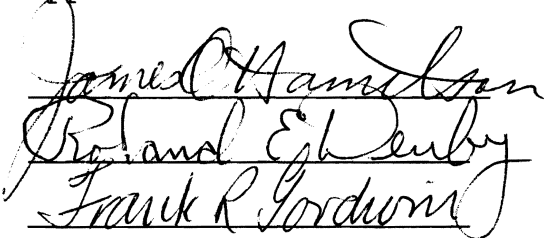 James O Hamilson
Roland E Denby
Frank R Gordwin